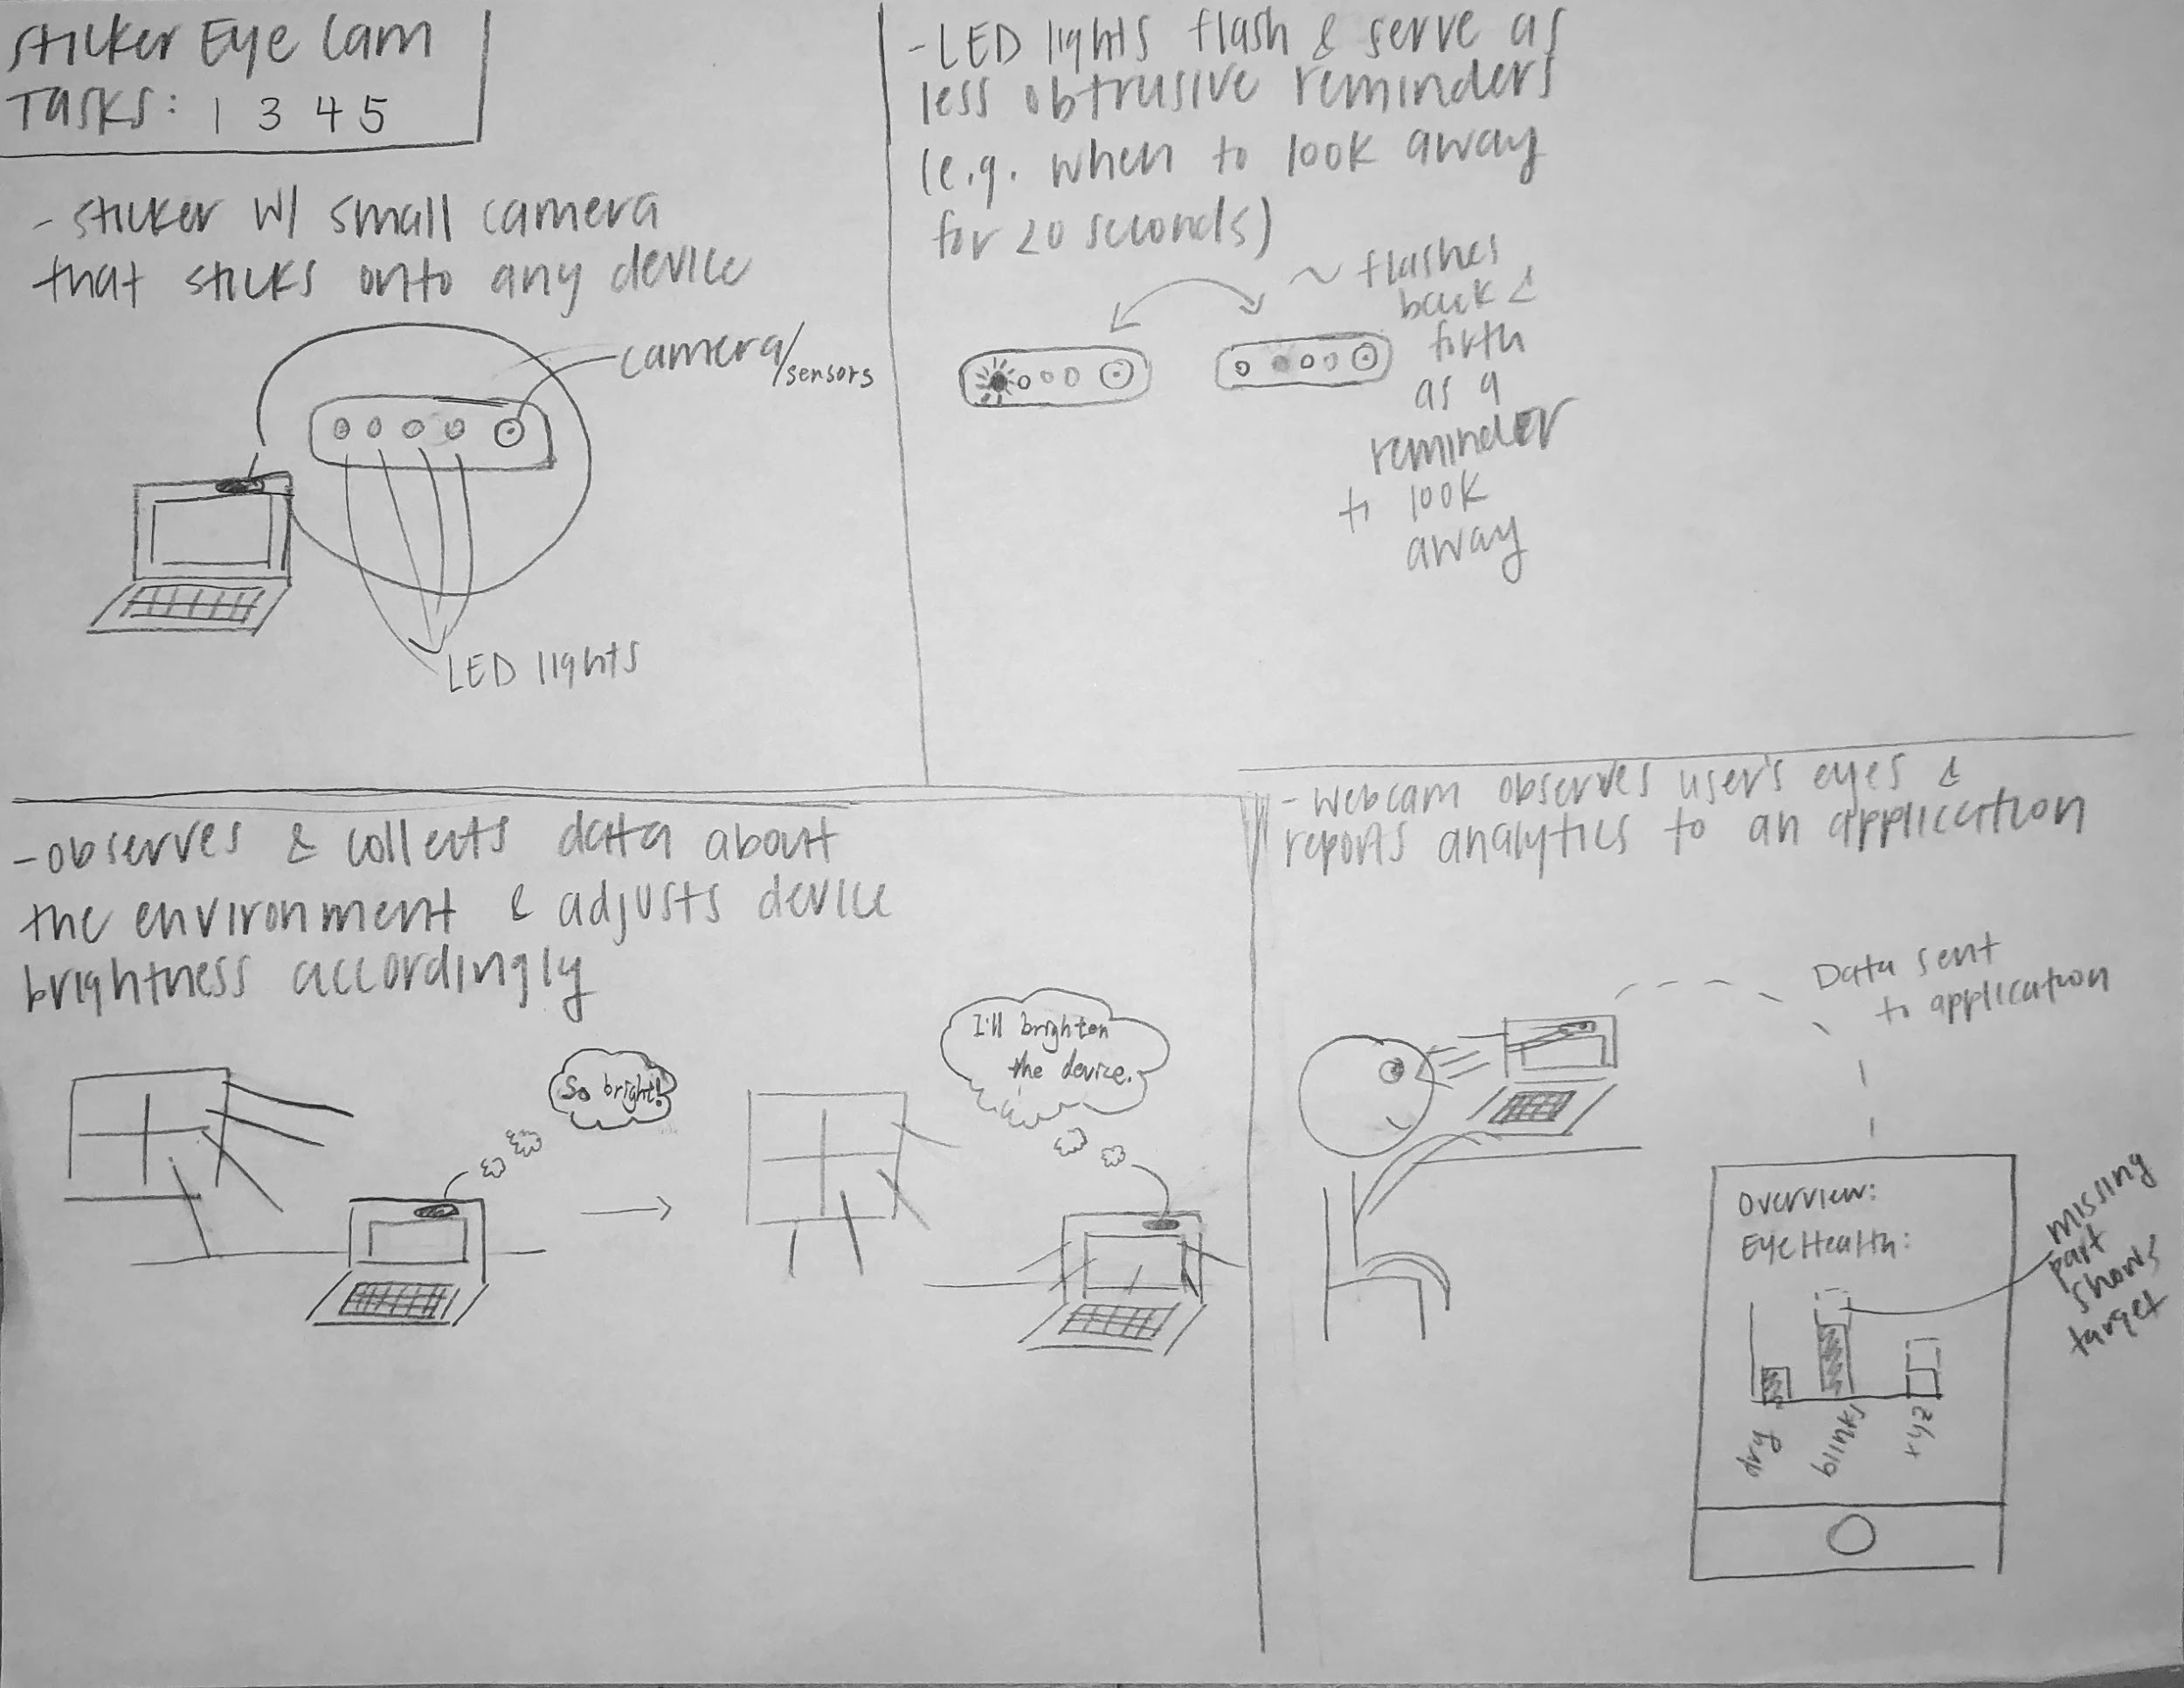 Sticker Eye Cam
Tasks: 1 3 4 5
- sticker w/ small camera
that sticks onto any device
camera/sensors
LED lights
- LED lights flash & serve as
less obtrusive reminders
(e.g. when to look away
for 20 seconds)
~ flashes
back &
forth
as a
reminder
to look
away
- observes & collects data about
the environment & adjusts device
brightness accordingly
So bright!
I'll brighten
the device.
- webcam observes user's eyes &
reports analytics to an application
Data sent
to application
Overview:
Eye Health:
missing
part
shows
target
dry
blinks
xyz